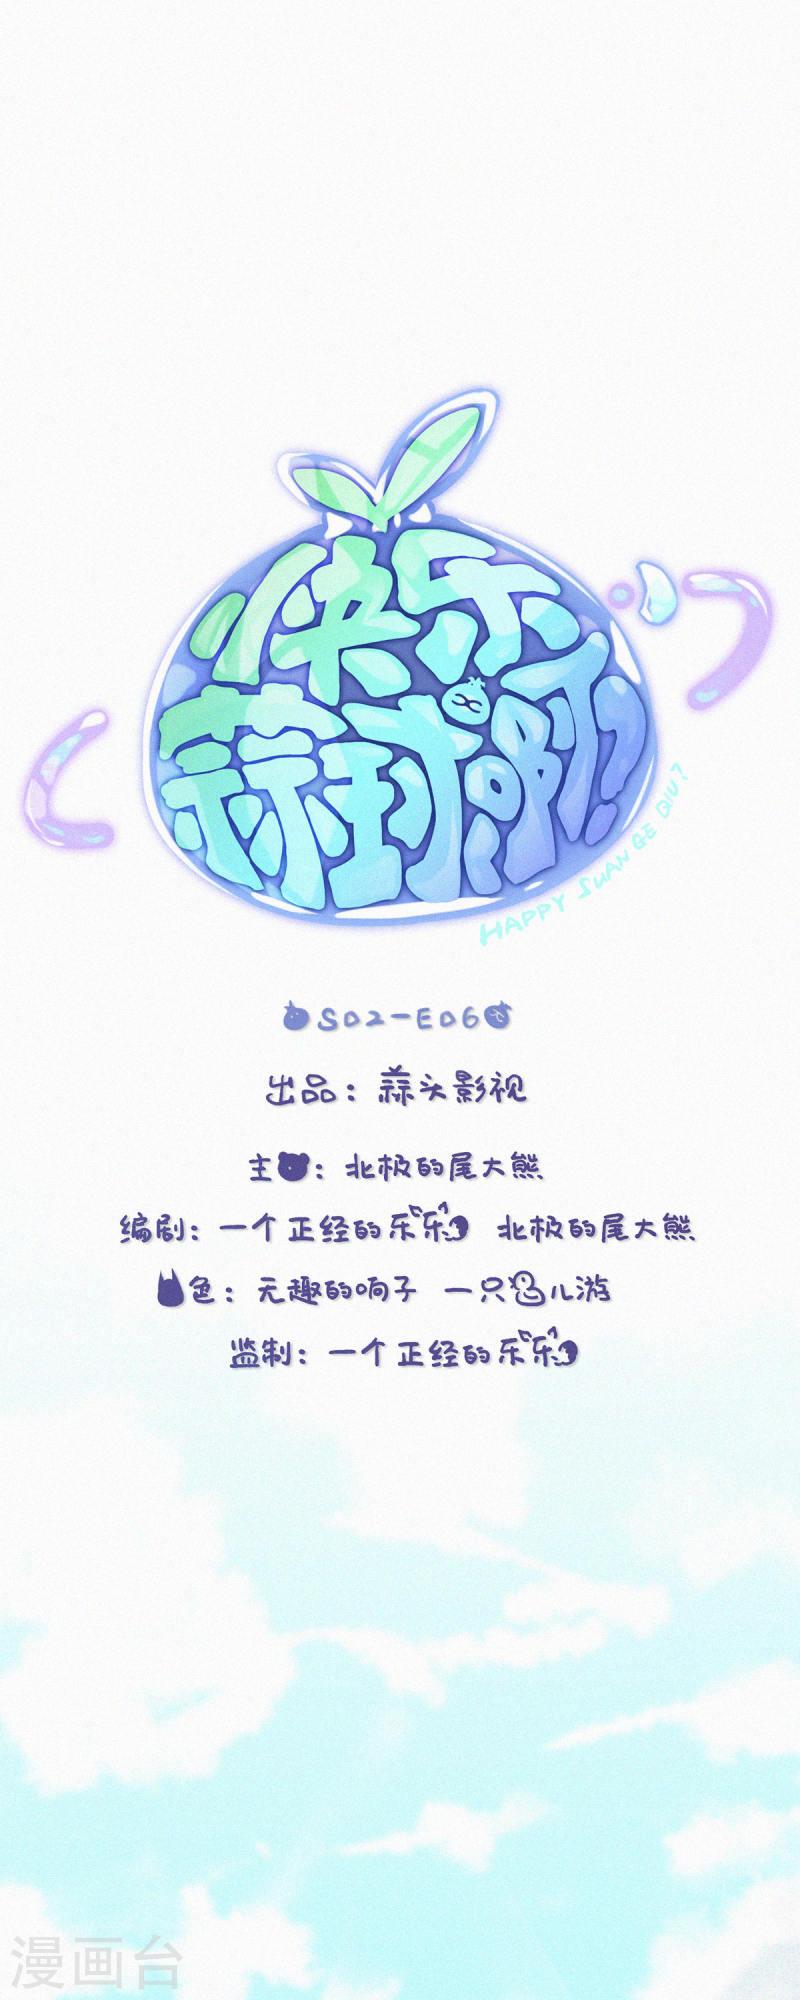 快乐
蒜球啊?!
HAPPY SUAN GE QIU?
S02-E06
出品：蒜头影视
主：北极的尾大熊
编剧：一个正经的乐乐 北极的尾大熊
色：无趣的响子 一只儿游
监制：一个正经的乐乐
漫画台